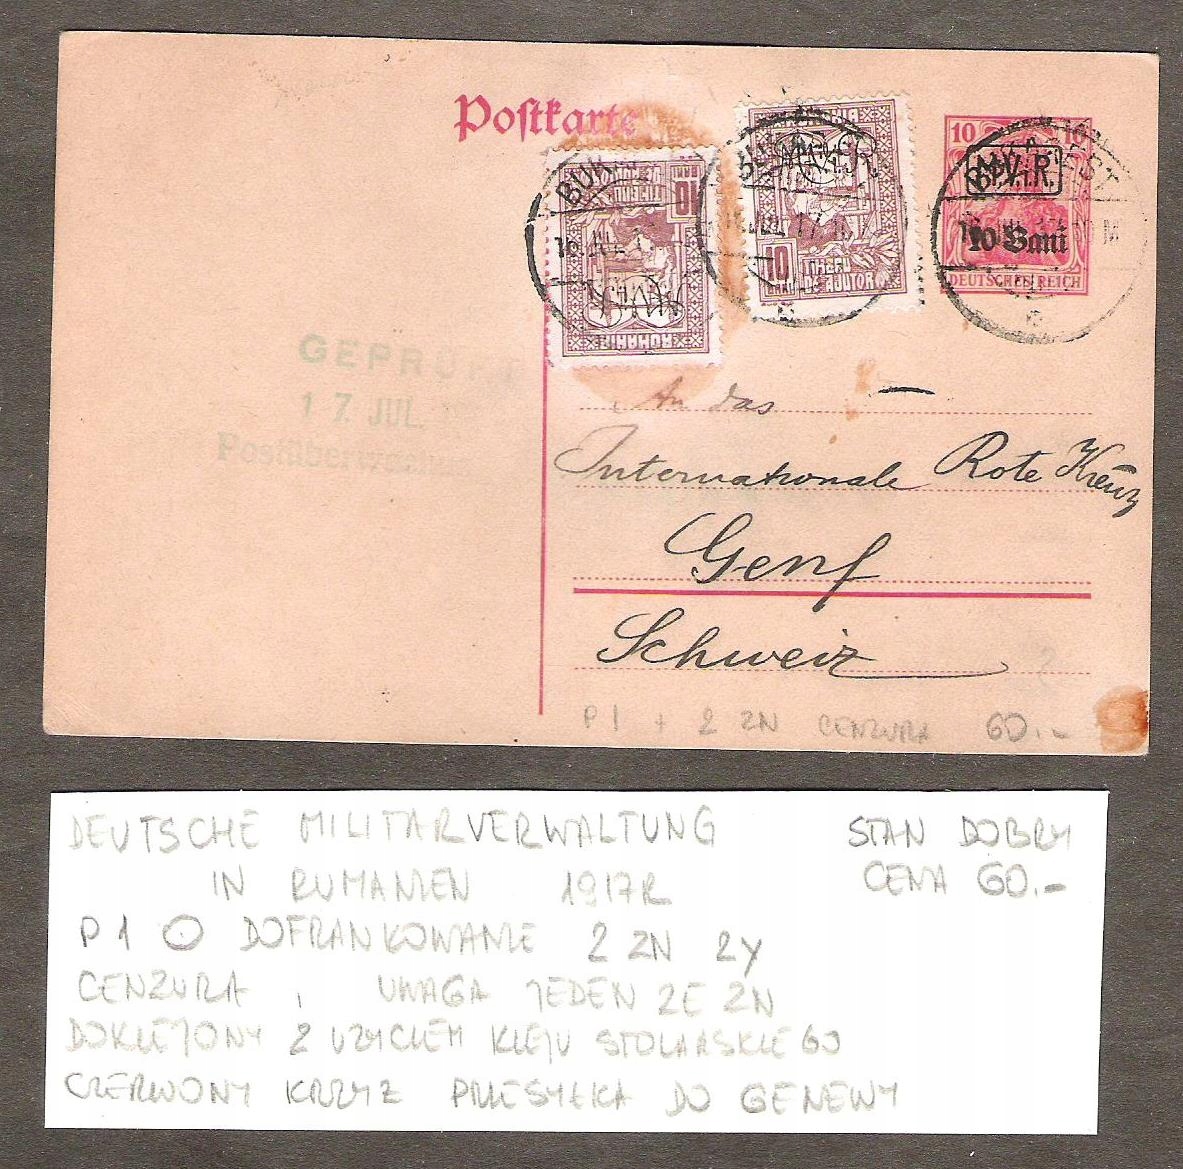 Postkarte
10 10
M.V.i.R.
10 Bani
DEUTSCHES REICH
BUKAREST
ROMANIA
10 BANI
TIMBRU
DE AJUTOR
16 JUL 17
GEPRÜFT
17 JUL.
Postüberwachung
An das
Internationale Rote Kreuz
Genf
Schweiz
P 1 + 2 ZN CENZURA 60.-
DEUTSCHE MILITARVERWALTUNG STAN DOBRY
IN RUMANIEN 1917R CENA 60.-
P 1 DOFRANKOWANIE 2 ZN 2Y
CENZURA, UWAGA JEDEN ZE ZN
DOKLEJONY Z UZYCIEM KLEJU STOLARSKIEGO
CZERWONY KRZYZ PRZESYŁKA DO GENEWY